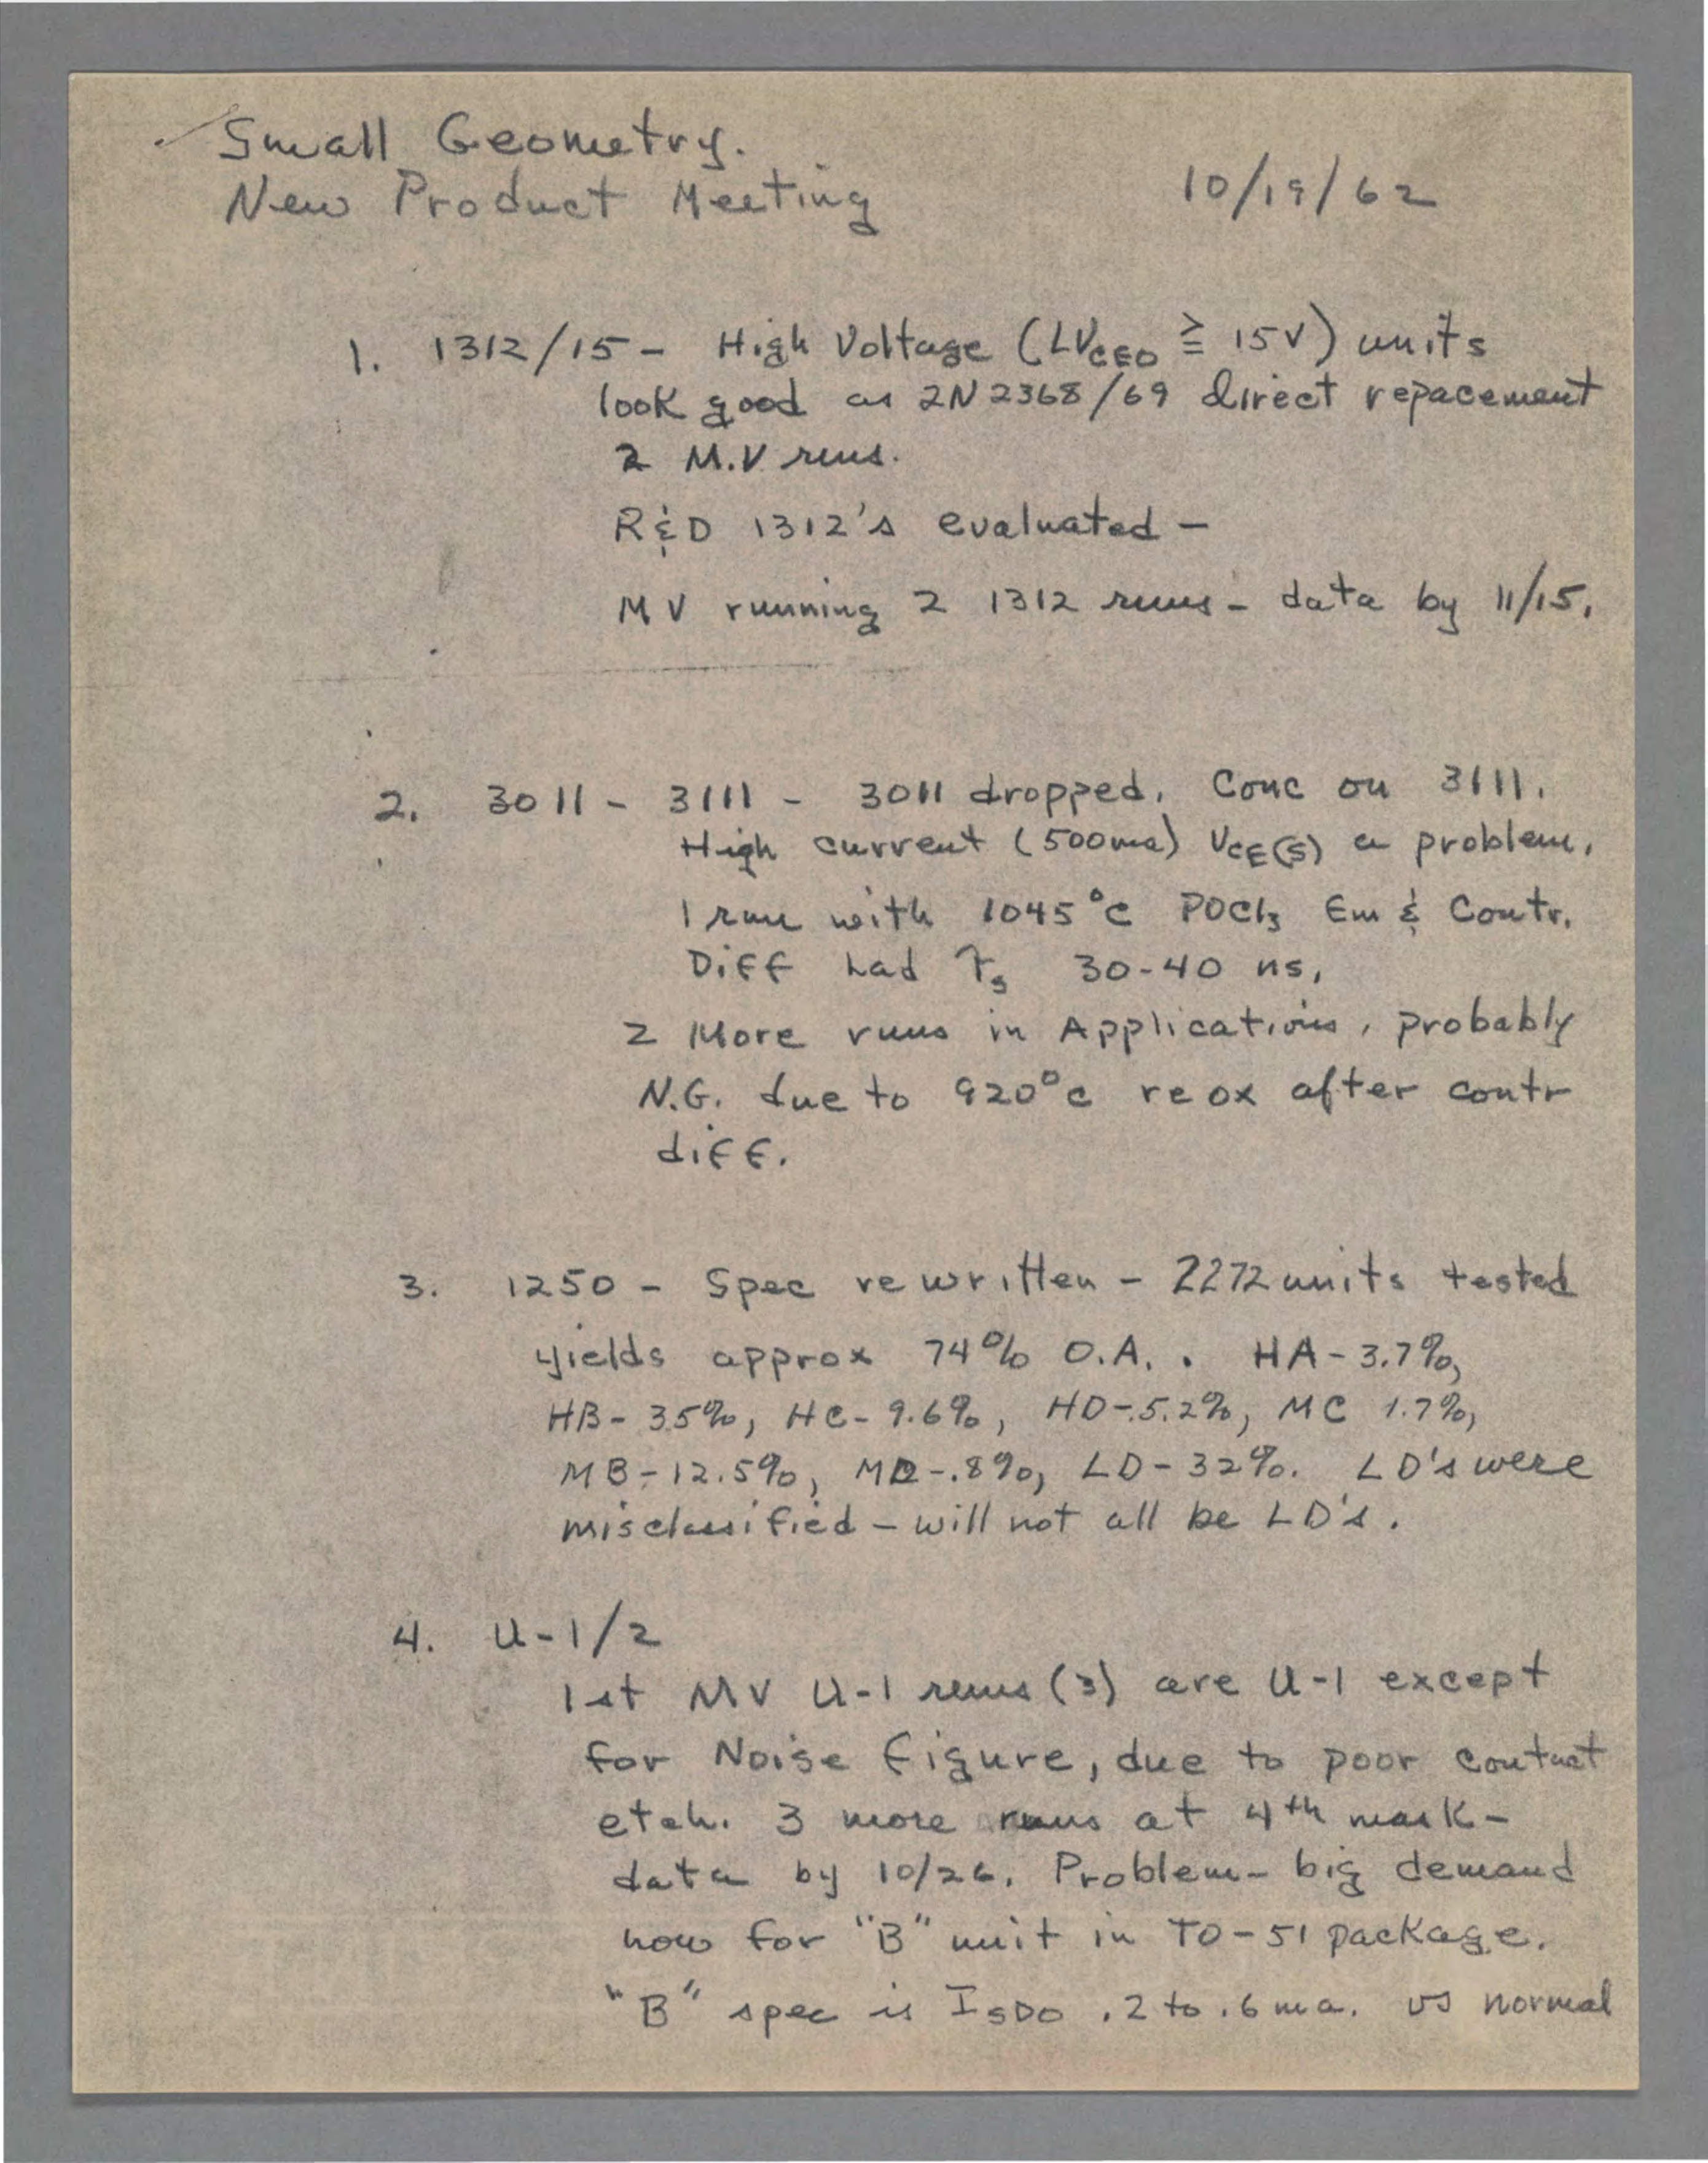 Small Geometry.
New Product Meeting 10/19/62
1. 1312/15 - High Voltage (LVCEO ≧ 15V) units
look good as 2N2368/69 direct repacement
2 M.V runs.
R&D 1312's evaluated -
MV running 2 1312 runs - data by 11/15.
2. 3011 - 3111 - 3011 dropped. Conc on 3111.
High current (500ma) VCE(S) a problem.
1 run with 1045°C POCl3 Em & Contr.
Diff had τs 30-40 ns.
2 More runs in Applications, probably
N.G. due to 920°C re ox after contr
diff.
3. 1250 - Spec rewritten - 2272 units tested
yields approx 74% O.A. . HA - 3.7%,
HB - 35%, HC - 9.6%, HD - 5.2%, MC 1.7%,
MB - 12.5%, MD - .8%, LD - 32%. LD's were
misclassified - will not all be LD's.
4. U-1/2
1st MV U-1 runs (3) are U-1 except
for Noise Figure, due to poor contact
etch. 3 more runs at 4th mask -
data by 10/26. Problem - big demand
now for "B" unit in TO-51 package.
"B" spec is ISDO .2 to .6 ma. vs normal